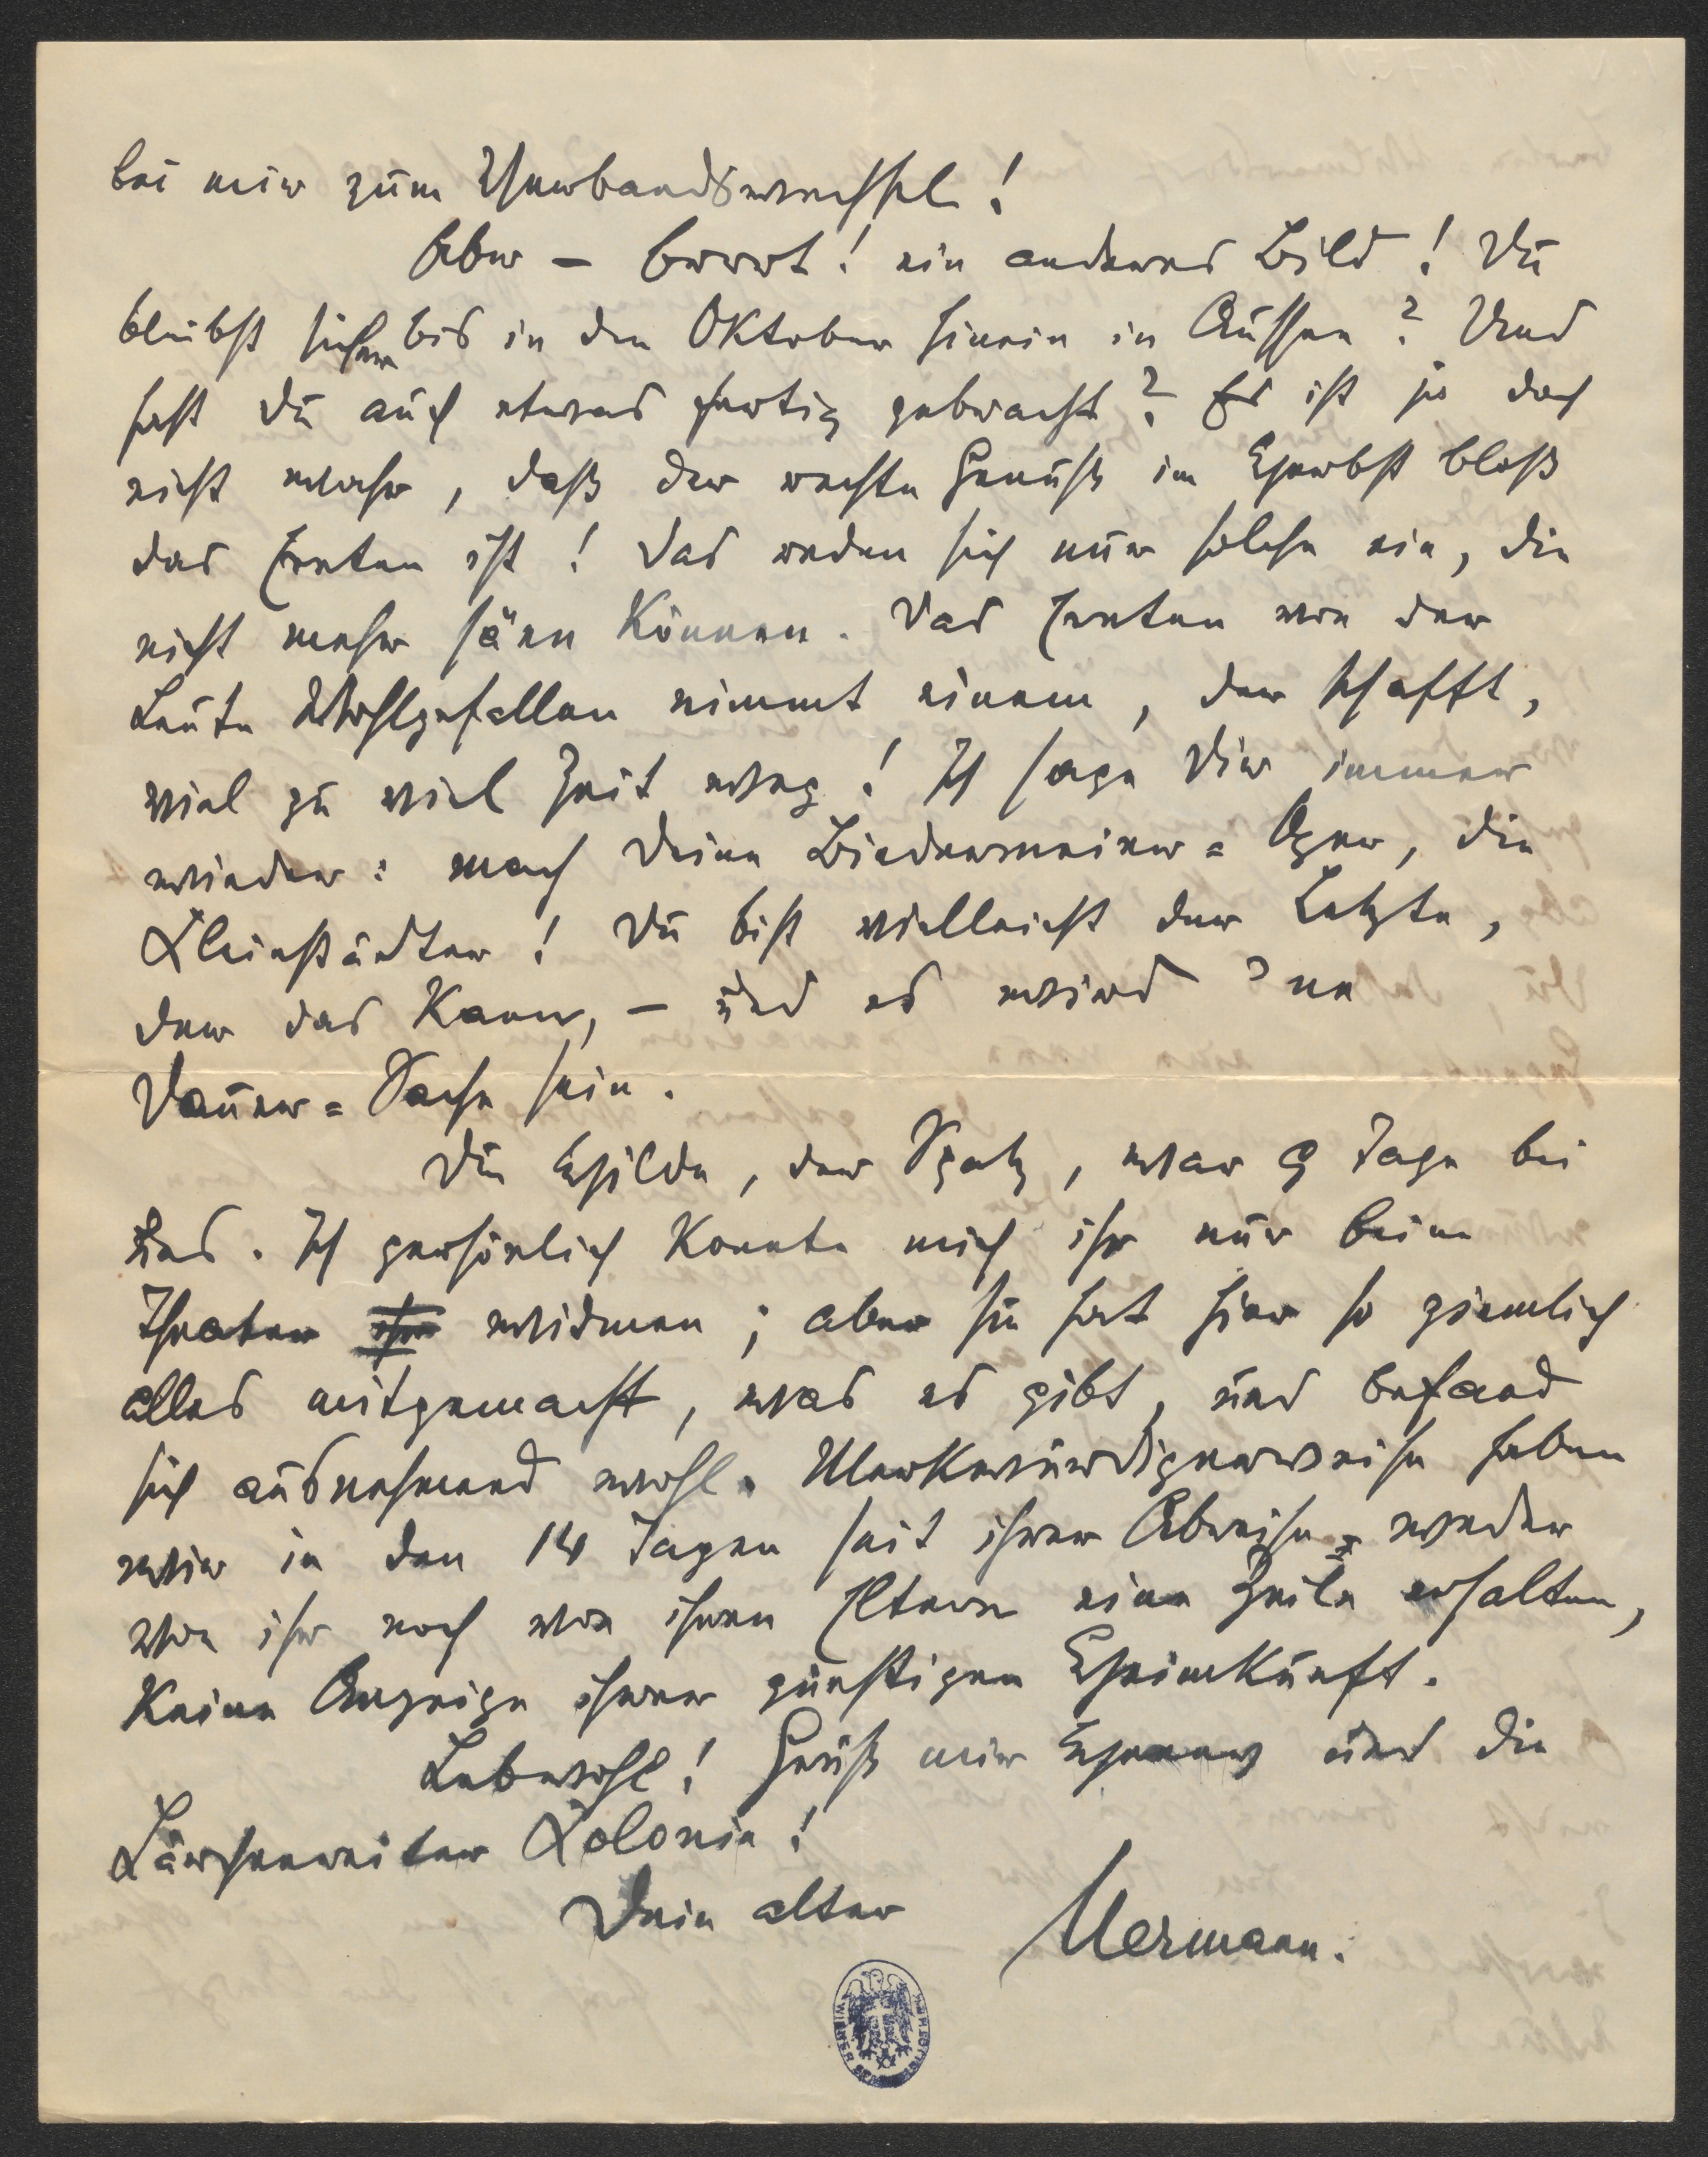 bei mir zum Verbandswechsel!
Aber – brrrt! ein anderes Bild! Du
bleibst sicher bis in den Oktober hinein in Aussee? Und
hast Du auch etwas fertig gebracht? Es ist ja doch
nicht wahr, daß der rechte Genuß im Herbst bloß
das Ernten ist! Das reden sich nur solche ein, die
nicht mehr säen können. Das Ernten von der
Leute Wohlgefallen nimmt einem, der schafft,
viel zu viel Zeit weg! Ich sage Dir immer
wieder: mach Deine Biedermeier=Oper, die
Kleinstädter! Du bist vielleicht der Letzte,
der das kann, – und es wird 'ne
Dauer=Sache sein.
Die Hilde, der Spatz, war 9 Tage bei
uns. Ich persönlich konnte mich ihr nur beim
Theater widmen; aber sie hat hier so ziemlich
alles mitgemacht, was es gibt, und befand
sich ausnehmend wohl. Merkwürdigerweise haben
wir in den 14 Tagen seit ihrer Abreise weder
von ihr noch von ihren Eltern eine Zeile erhalten,
keine Anzeige ihrer günstigen Heimkunft.
Lebwohl! Grüß mir und die
Lärchenreiter Kolonie!
Dein alter
Hermann.
WIENER